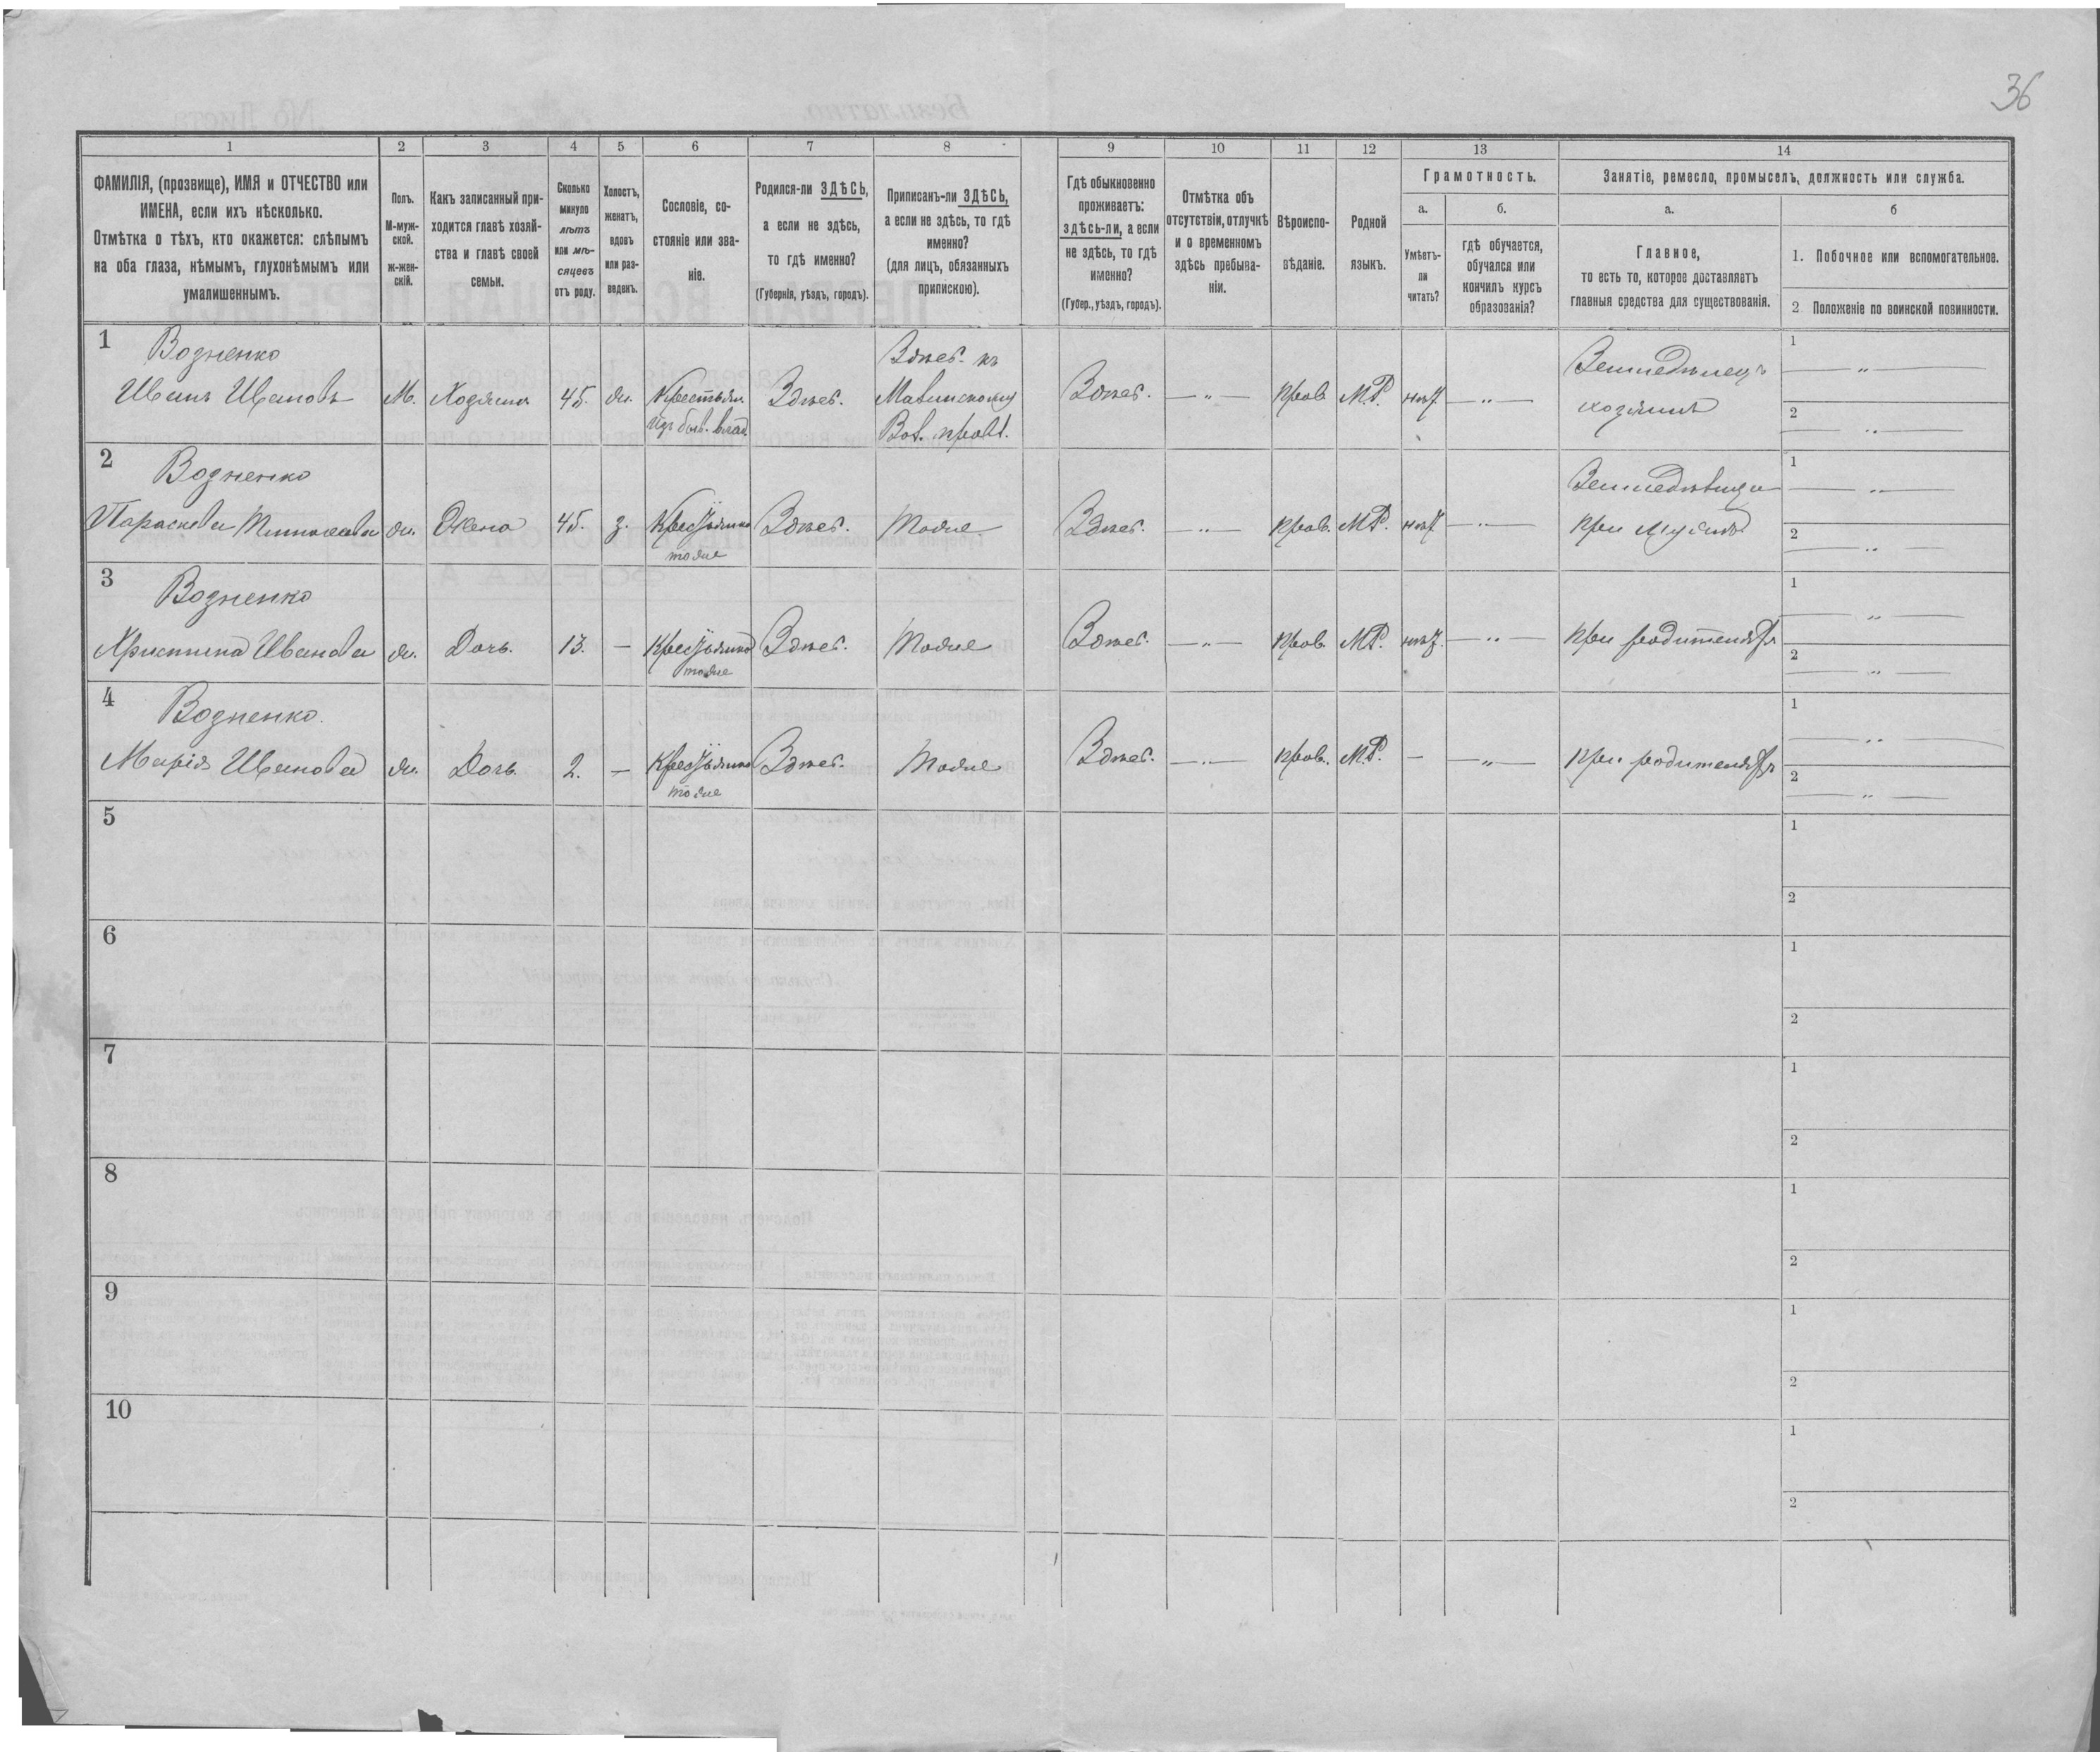 36
1 2 3 4 5 6 7 8 9 10 11 12 13 14
ФАМИЛІЯ, (прозвище), ИМЯ и ОТЧЕСТВО или
ИМЕНА, если ихъ нѣсколько.
Отмѣтка о тѣхъ, кто окажется: слѣпымъ
на оба глаза, нѣмымъ, глухонѣмымъ или
умалишеннымъ.
Полъ.
М-муж-
ской.
ж-жен-
скій.
Какъ записанный при-
ходится главѣ хозяй-
ства и главѣ своей
семьи.
Сколько
минуло
лѣтъ
или мѣ-
сяцевъ
отъ роду.
Холостъ,
женатъ,
вдовъ
или раз-
веденъ.
Сословіе, со-
стояніе или зва-
ніе.
Родился-ли ЗДѢСЬ,
а если не здѣсь,
то гдѣ именно?
(Губернія, уѣздъ, городъ).
Приписанъ-ли ЗДѢСЬ,
а если не здѣсь, то гдѣ
именно?
(для лицъ, обязанныхъ
припискою).
Гдѣ обыкновенно
проживаетъ:
здѣсь-ли, а если
не здѣсь, то гдѣ
именно?
(Губер., уѣздъ, городъ).
Отмѣтка объ
отсутствіи, отлучкѣ
и о временномъ
здѣсь пребыва-
ніи.
Вѣроиспо-
вѣданіе.
Родной
языкъ.
Грамотность.
а.
Умѣетъ-
ли
читать?
б.
гдѣ обучается,
обучался или
кончилъ курсъ
образованія?
Занятіе, ремесло, промыселъ, должность или служба.
а.
Главное,
то есть то, которое доставляетъ
главныя средства для существованія.
б
1. Побочное или вспомогательное.
2 Положеніе по воинской повинности.
1
Возненко
Иванъ Ивановъ
М.
Хозяинъ
45.
ж.
Крестьян.
изъ быв. влад.
Здѣсь.
Здѣсь. къ
Вол. прав.
Здѣсь.
— „ —
прав.
М.Р.
нѣт
— „ —
Земледѣлецъ
хозяинъ
1 — „ —
2 — „ —
2
Возненко
Параскева
ж.
Жена
45.
з.
Крестьянка
тоже
Здѣсь.
Тоже
Здѣсь.
— „ —
прав.
М.Р.
нѣт
— „ —
при мужѣ
1 — „ —
2 — „ —
3
Возненко
Христина Иванова
ж.
Дочь.
13.
—
Крестьянка
тоже
Здѣсь.
Тоже
Здѣсь.
— „ —
прав.
М.Р.
нѣт.
— „ —
при родителяхъ
1 — „ —
2 — „ —
4
Возненко.
Марія Иванова
ж.
Дочь.
2.
—
Крестьянка
тоже
Здѣсь.
Тоже
Здѣсь.
— „ —
прав.
М.Р.
—
— „ —
при родителяхъ
1 — „ —
2 — „ —
5
1
2
6
1
2
7
1
2
8
1
2
9
1
2
10
1
2